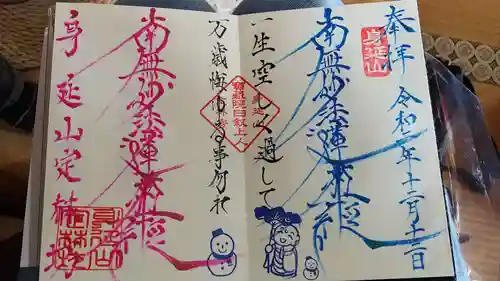 奉拝
身延山
令和二年十二月十三日
南無妙法蓮華経
一生空しく過して
万歳悔ゆる事勿れ
南無妙法蓮華経
身延山定林坊